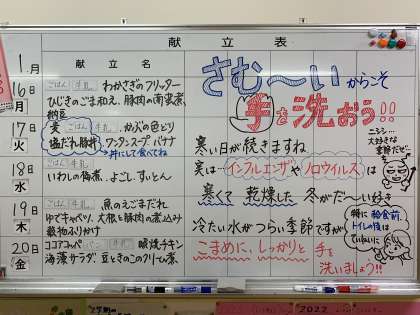 献立表
献立名
1月
16日 ごはん 牛乳 わかさぎのフリッター
月 ひじきのごま和え、豚肉の南蛮煮、
納豆
17日 麦ごはん 牛乳 かぶの色どり
火 塩だれ豚丼 ワンタンスープ バナナ
丼にして食べてね
18日 ごはん 牛乳
水 いわしの梅煮、よごし、すいとん
19日 ごはん 牛乳 魚のえごまだれ
木 ゆでキャベツ、大根と豚肉の煮込み
穀物ふりかけ
20日 ココアコッペパン 牛乳 照焼チキン
金 海藻サラダ、豆ときのこのクリーム煮
さむ〜いからこそ
手を洗おう!!
寒い日が続きますね
実は…インフルエンザやノロウイルスは
寒くて乾燥した冬がだ〜い好き
冷たい水がつらい季節ですが
こまめに、しっかりと手を
洗いましょう!!
ニシシ…
大好きな
季節だぜー
特に給食前、
トイレの後は
ていねいに
2022